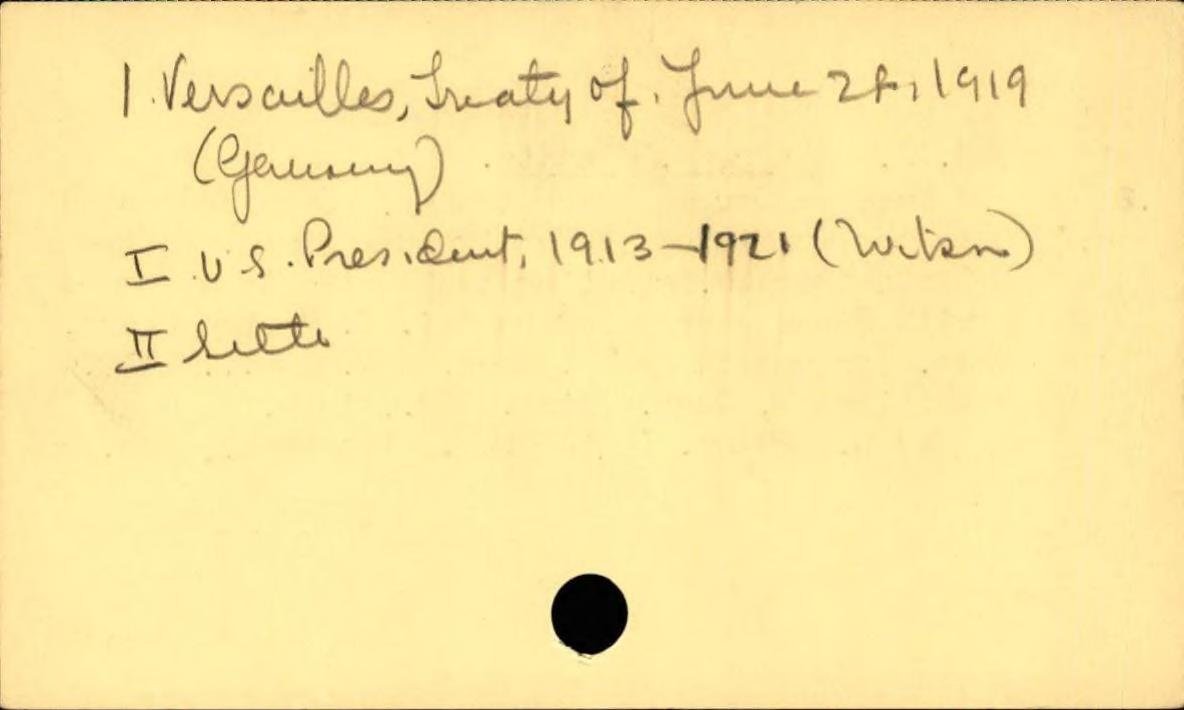 1. Versailles, Treaty of. June 28, 1919
(Germany)
I U.S. President, 1913-1921 (Wilson)
II title